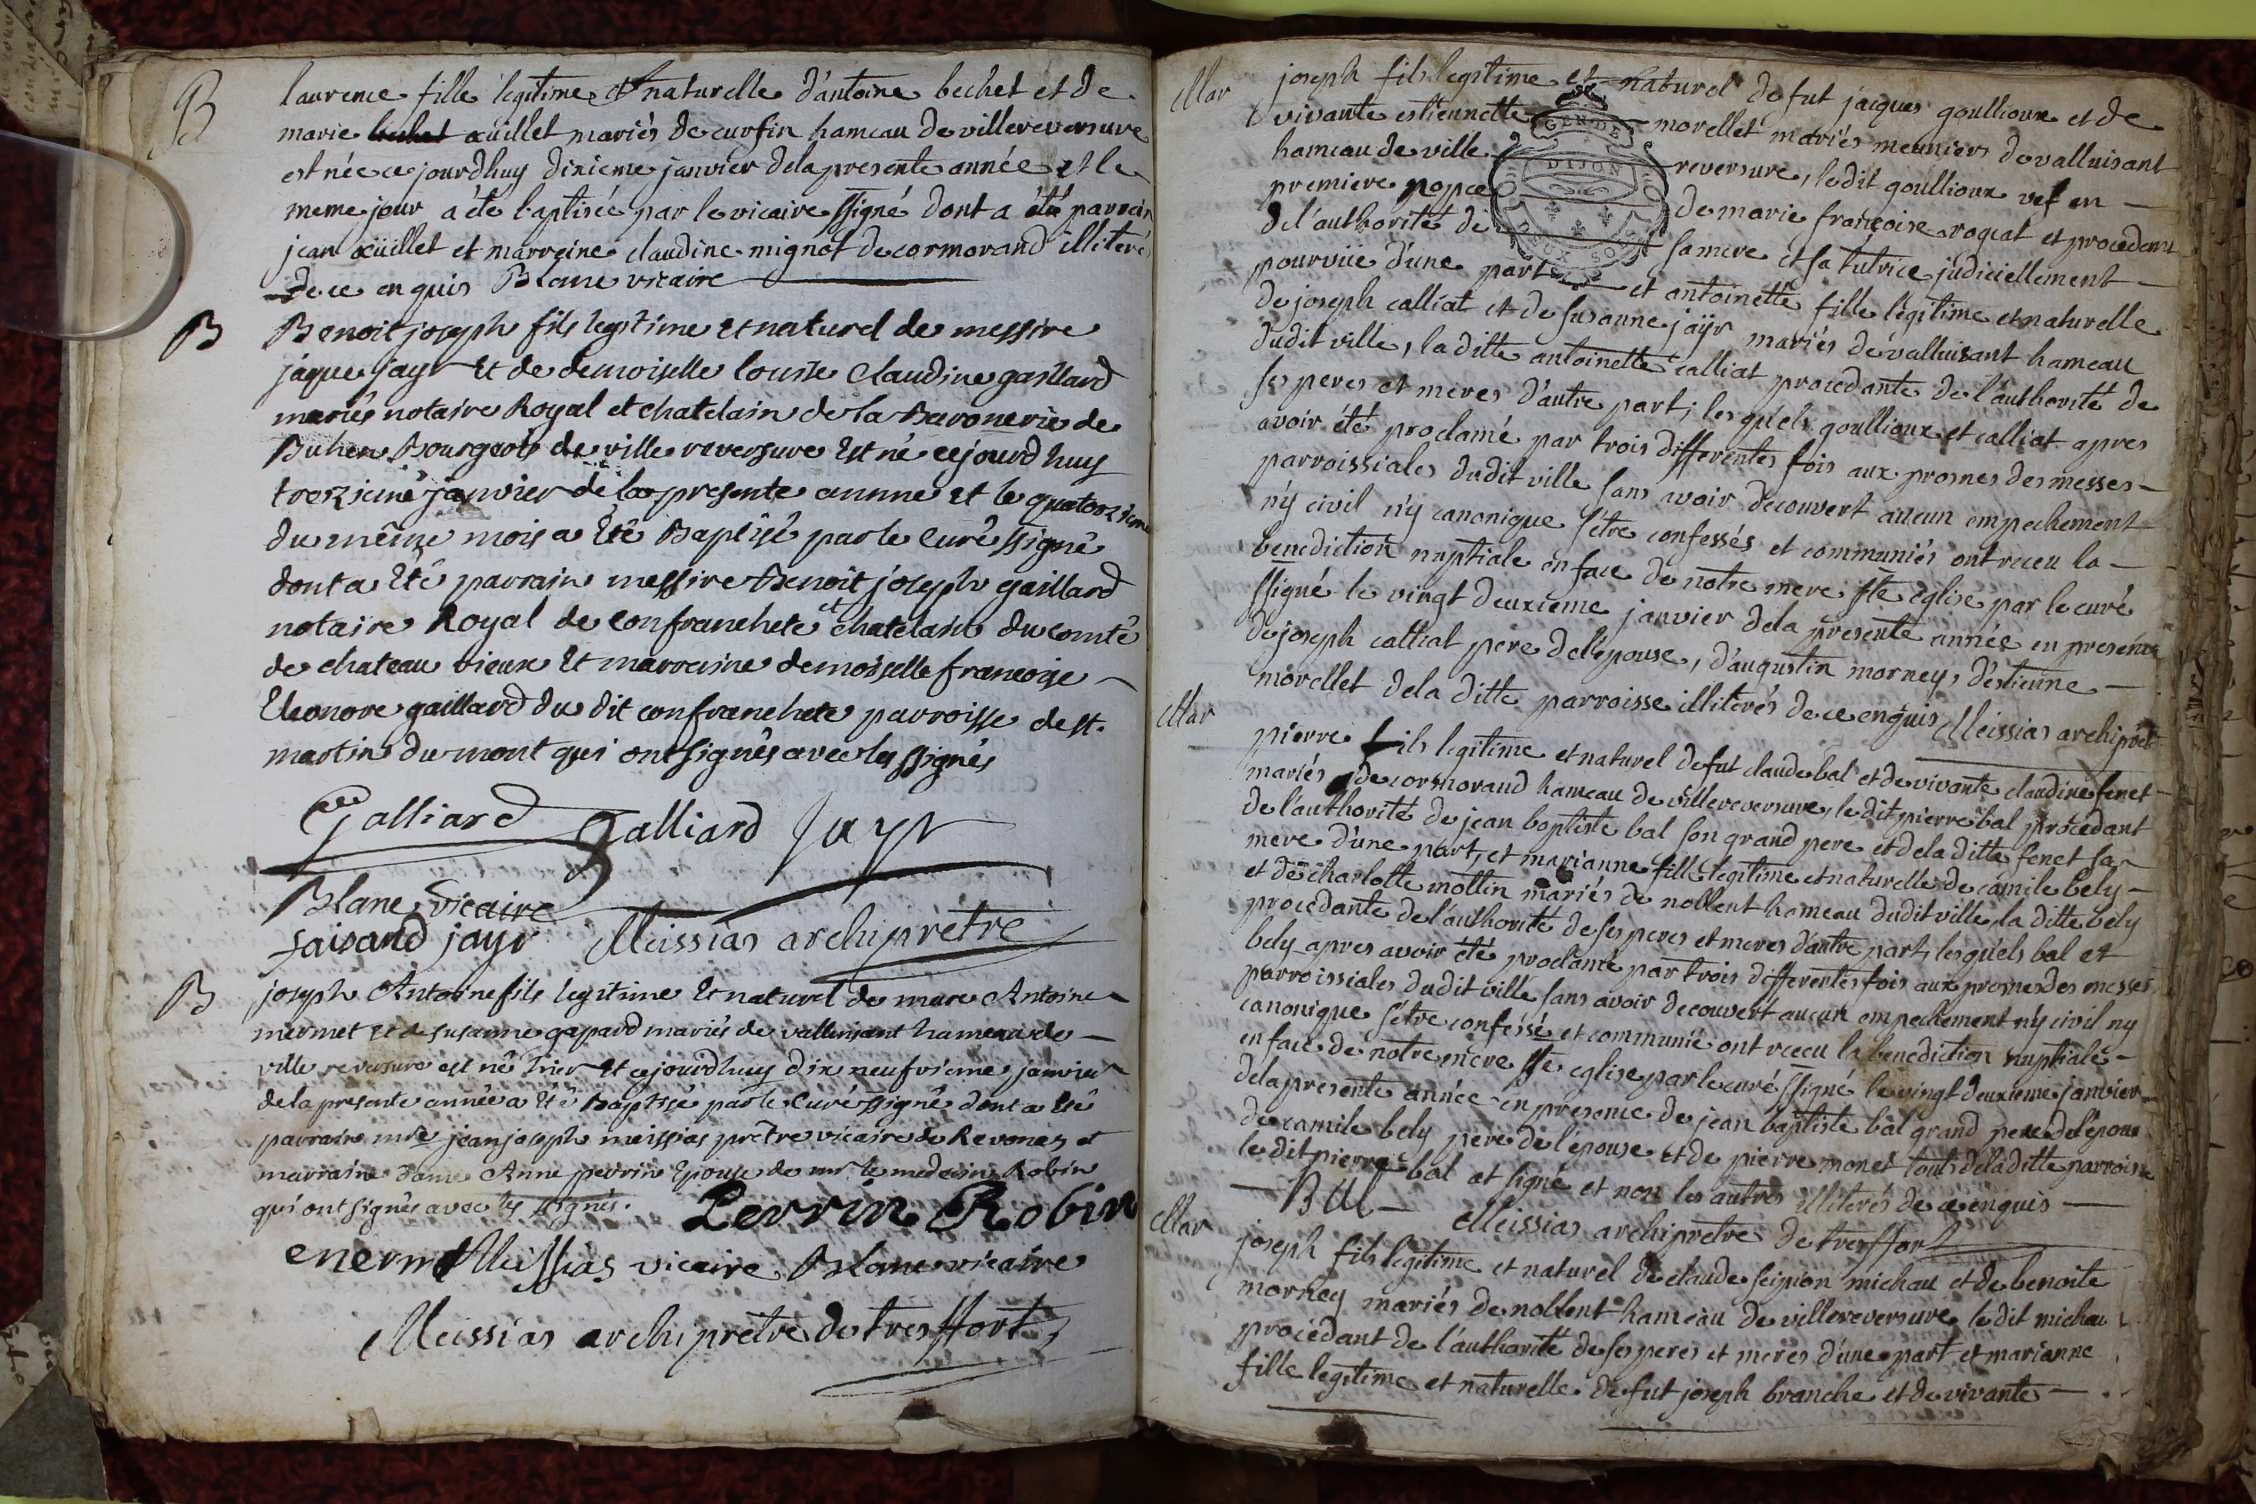 B
laurence fille legitime et naturelle d'antoine bechet et de
marie bechet œuillet mariés de curfin hameau de villereversure
est née ce jourdhuy dixieme janvier dela presente année et le
meme jour a été baptisée par le vicaire ssigné dont a été parrein
jean œuillet et marreine claudine mignot de cormorand illiterés
de ce enquis Blanc vicaire
B
Benoit joseph fils legitime et naturel de messire
jaque jayr et de demoiselle louise Claudine gaillard
mariés notaire Royal et chatelain de la Baronerie de
Buhen Bourgeois de ville reversure est né cejourdhuy
treizieme janvier de la presente annne et le quatorzieme
du même mois a été Baptisé par le Curé ssigné
dont a été parrain messire Benoit joseph gaillard
notaire Royal de Confranchete et chatelain du comté
de chateau vieux et marreine demoiselle francoise
Eleonore gaillard du dit confranchete parroisse de st.
martin du mont qui ont signés avec les ssignés
Galliard Galliard Jayr
Blanc vicaire
faisand jayr Meissias archiprêtre
B
joseph Antoine fils legitime et naturel de marc Antoine
mermet et de susanne gapard mariés de valluisant hameau de
ville reversure est né hier et cejourdhuy dix neufvieme janvier
de la presente année a été Baptisé par le Curé ssigné dont a été
parrain mre jean joseph meissias prêtre vicaire de Revonas et
marraine dame Anne perrin Epouse de mr le medecin Robin
qui ont signés avec les ssignés.
Perrin Robin
Meissias vicaire Blanc vicaire
Meissias archiprêtre de tresffort
Mar
joseph fils legitime et naturel de fut jacques goullioux et de
vivante estiennette morellet mariés meuniers de valluisant
hameau de ville reversure, le dit goullioux vef en
premiere nopce de marie françoise roguat et procedant
de l'authorité de sa mere et sa tutrice judiciellement
pourvüe d'une part et antoinette fille légitime et naturelle
de joseph calliat et de susanne jaÿr mariés de valluisant hameau
dudit ville, la ditte antoinette calliat procedante de l'authorité de
ses peres et meres d'autre part; les quels goullioux et calliat apres
avoir été proclamé par trois differentes fois aux prosnes des messes
parroissiales dudit ville sans avoir decouvert aucun empechement
n'y civil n'y canonique s'être confessés et communiés ont receu la
benediction nuptiale en face de notre mere ste eglise par le curé
ssigné le vingt deuxieme janvier dela presente année en presence
de joseph calliat pere de l'epouse, d'augustin morney, d'estienne
morellet dela ditte parroisse illiterés de ce enquis Meissias archiprêtre
Mar
pierre fils legitime et naturel de fut claude bal et de vivante claudine fenet
mariés de cormorand hameau de villereversure, le dit pierre bal procedant
de l'authorité de jean baptiste bal son grand pere et dela ditte fenet sa
mere d'une part, et marianne fille legitime et naturelle de camile bely
et de charlotte mottin mariés de nollent hameau dudit ville, la ditte bely
procedante de l'authorité de ses peres et meres d'autre part, les quels bal et
bely apres avoir été proclamé par trois differentes fois aux prosnes des messes
parroissiales dudit ville sans avoir decouvert aucun empechement n'y civil ny
canonique s'être confessé et communié ont receu la benediction nuptiale
en face de notre mere ste eglise par le curé ssigné le vingt deuxieme janvier
dela presente année en presence de jean baptiste bal grand pere de l'epoux
de camile bely pere de l'epouse et de pierre monet touts dela ditte parroisse
le dit pierre bal at signé et non les autres illiterés de ce enquis
Bal Meissias archiprêtre de tresffort
Mar
joseph fils legitime et naturel de claude scipion michau et de benoite
morney mariés de nollent hameau de villereversure le dit michau
procedant de l'authorité de ses peres et meres d'une part et marianne
fille legitime et naturelle de fut joseph branche et de vivante
GEN DE
DIJON
DEUX SOLS